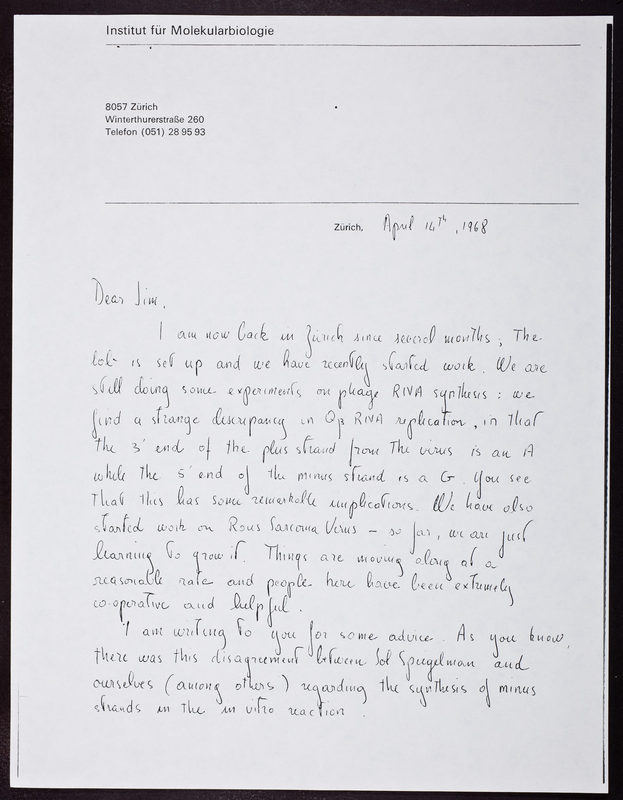 Institut für Molekularbiologie
8057 Zürich
Winterthurerstraße 260
Telefon (051) 28 95 93
Zürich, April 14th, 1968
Dear Jim,
I am now back in Zürich since several months; The
lab is set up and we have recently started work. We are
still doing some experiments on phage RNA synthesis: we
find a strange discrepancy in Qβ RNA replication, in that
the 3' end of the plus strand from the virus is an A
while the 5' end of the minus strand is a G. You see
that this has some remarkable implications. We have also
started work on Rous Sarcoma Virus – so far, we are just
learning to grow it. Things are moving along at a
reasonable rate and people here have been extremely
co-operative and helpful.
I am writing to you for some advice. As you know,
there was this disagreement between Sol Spiegelman and
ourselves (among others) regarding the synthesis of minus
strands in the in vitro reaction.